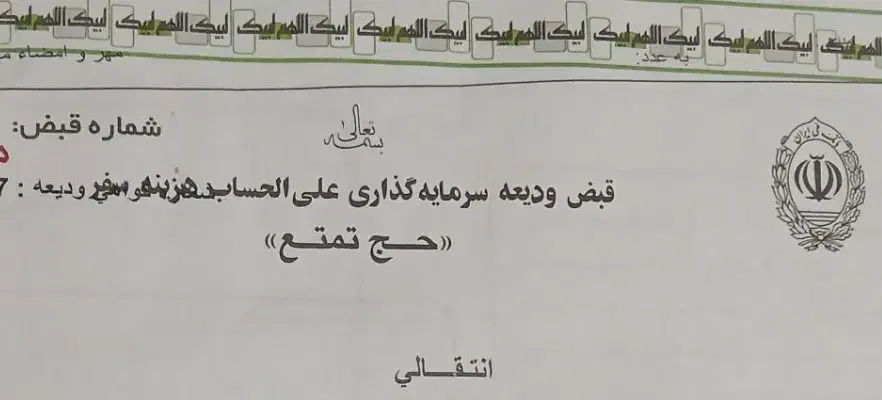 لبیک اللهم لبیک لبیک اللهم لبیک لبیک اللهم لبیک لبیک اللهم لبیک لبیک اللهم لبیک لبیک اللهم لبیک لبیک اللهم لبیک
مهر و امضاء
به عدد:
بسمه تعالی
شماره قبض:
قبض ودیعه سرمایه‌گذاری علی‌الحساب هزینه سفر
ودیعه : 7
«حج تمتع»
انتقالي